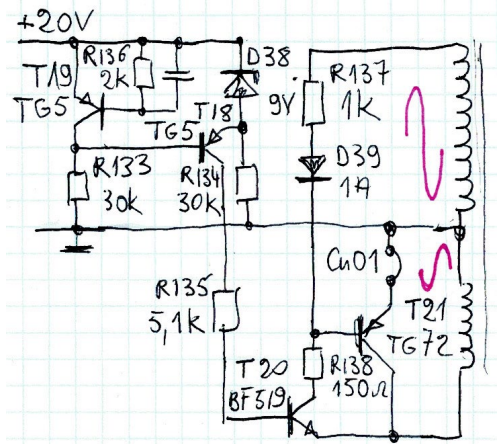 +20V
R136
2k
D38
T19
TG5
T18
TG5
9V
R137
1k
D39
1A
R133
30k
R134
30k
Cu01
R135
5,1k
T21
TG72
T20
BF519
R138
150Ω